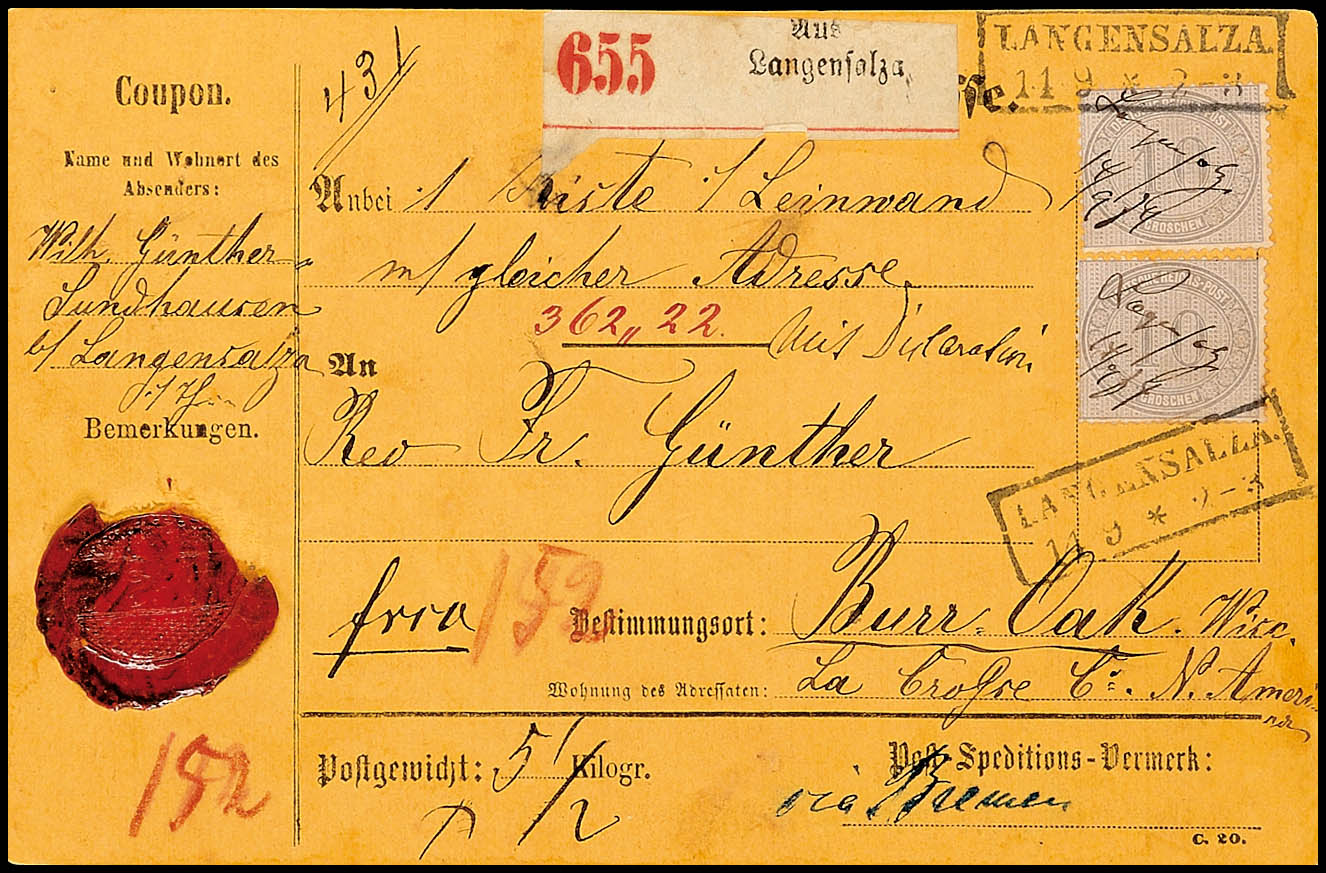 Coupon.
Name und Wohnort des
Absenders:
Wilh. Günther
Sundhausen
b/ Langensalza
i/ Th.
Bemerkungen.
152
431
655
Aus
Langensalza
sse.
LANGENSALZA.
11 9 * 2-3
Anbei 1 Kiste 1/ Leinwand
m/ gleicher Adresse.
362,, 22. Mit Diclaration
An
Rev Fr. Günther
frco
152
Bestimmungsort: Burr-Oak. Wisc.
Wohnung des Adressaten: La Crosse Co. N. Ameri-
Postgewicht: 5 1/2 Kilogr.
Post-Speditions-Vermerk:
via Bremen
C. 20.
10
GROSCHEN
DEUTSCHE REICHS-POST
10
GROSCHEN
LANGENSALZA.
11 9 * 2-3